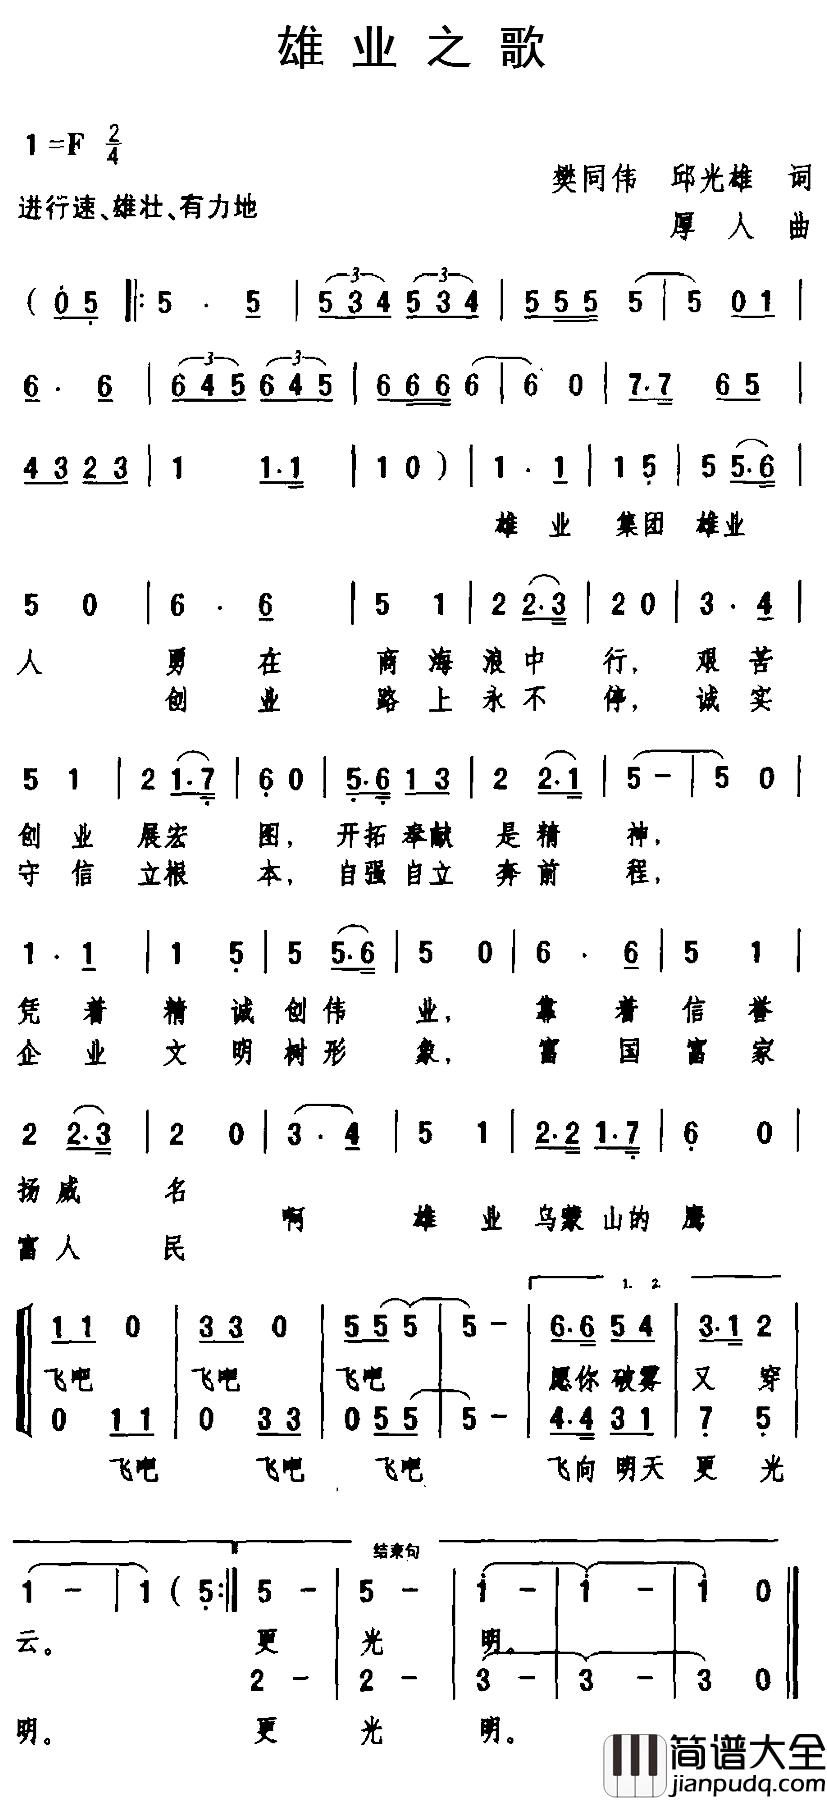 雄业之歌
1=F 2/4
樊同伟 邱光雄 词
进行速、雄壮、有力地
厚人 曲
( 0 5 ‖: 5 · 5 | 5 3 4 5 3 4 | 5 5 5 5 | 5 0 1 |
6 · 6 | 6 4 5 6 4 5 | 6 6 6 6 | 6 0 | 7·7 6 5 |
4 3 2 3 | 1 1·1 | 1 0 ) | 1 · 1 | 1 5 | 5 5·6 |
雄 业 集团 雄业
5 0 | 6 · 6 | 5 1 | 2 2·3 | 2 0 | 3 · 4 |
人 勇 在 商 海 浪中 行, 艰 苦
创 业 路 上 永不 停, 诚 实
5 1 | 2 1·7 | 6 0 | 5·6 1 3 | 2 2·1 | 5 – | 5 0 |
创 业 展宏 图, 开拓 奉献 是精 神,
守 信 立根 本, 自强 自立 奔前 程,
1 · 1 | 1 5 | 5 5·6 | 5 0 | 6 · 6 | 5 1 |
凭 着 精 诚 创伟 业, 靠 着 信 誉
企 业 文 明 树形 象, 富 国 富 家
2 2·3 | 2 0 | 3 · 4 | 5 1 | 2·2 1·7 | 6 0 |
扬威 名
啊 雄 业 乌蒙 山的 鹰
富人 民
1. 2.
1 1 0 | 3 3 0 | 5 5 5 | 5 – | 6·6 5 4 | 3·1 2 |
飞吧 飞吧 飞吧 愿你 破雾 又 穿
0 1 1 | 0 3 3 | 0 5 5 5 | 5 – | 4·4 3 1 | 7 5 |
飞吧 飞吧 飞吧 飞向 明天 更 光
结束句
1 – | 1 ( 5 :‖ 5 – | 5 – | 1 – | 1 – | 1 0 ‖
云。 更 光 明。
2 – | 2 – | 3 – | 3 – | 3 0 ‖
明。 更 光 明。
简谱大全
jianpudq.com